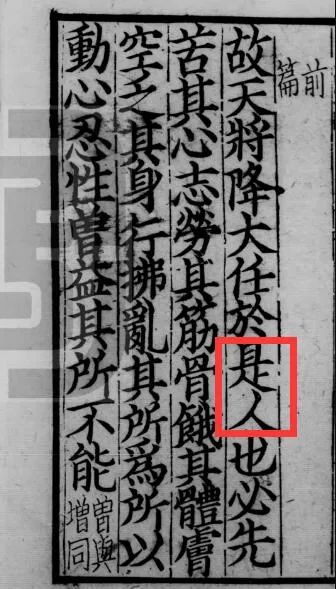 前篇
故天將降大任於是人也必先
苦其心志勞其筋骨餓其體膚
空乏其身行拂亂其所爲所以
動心忍性曾益其所不能曾與增同